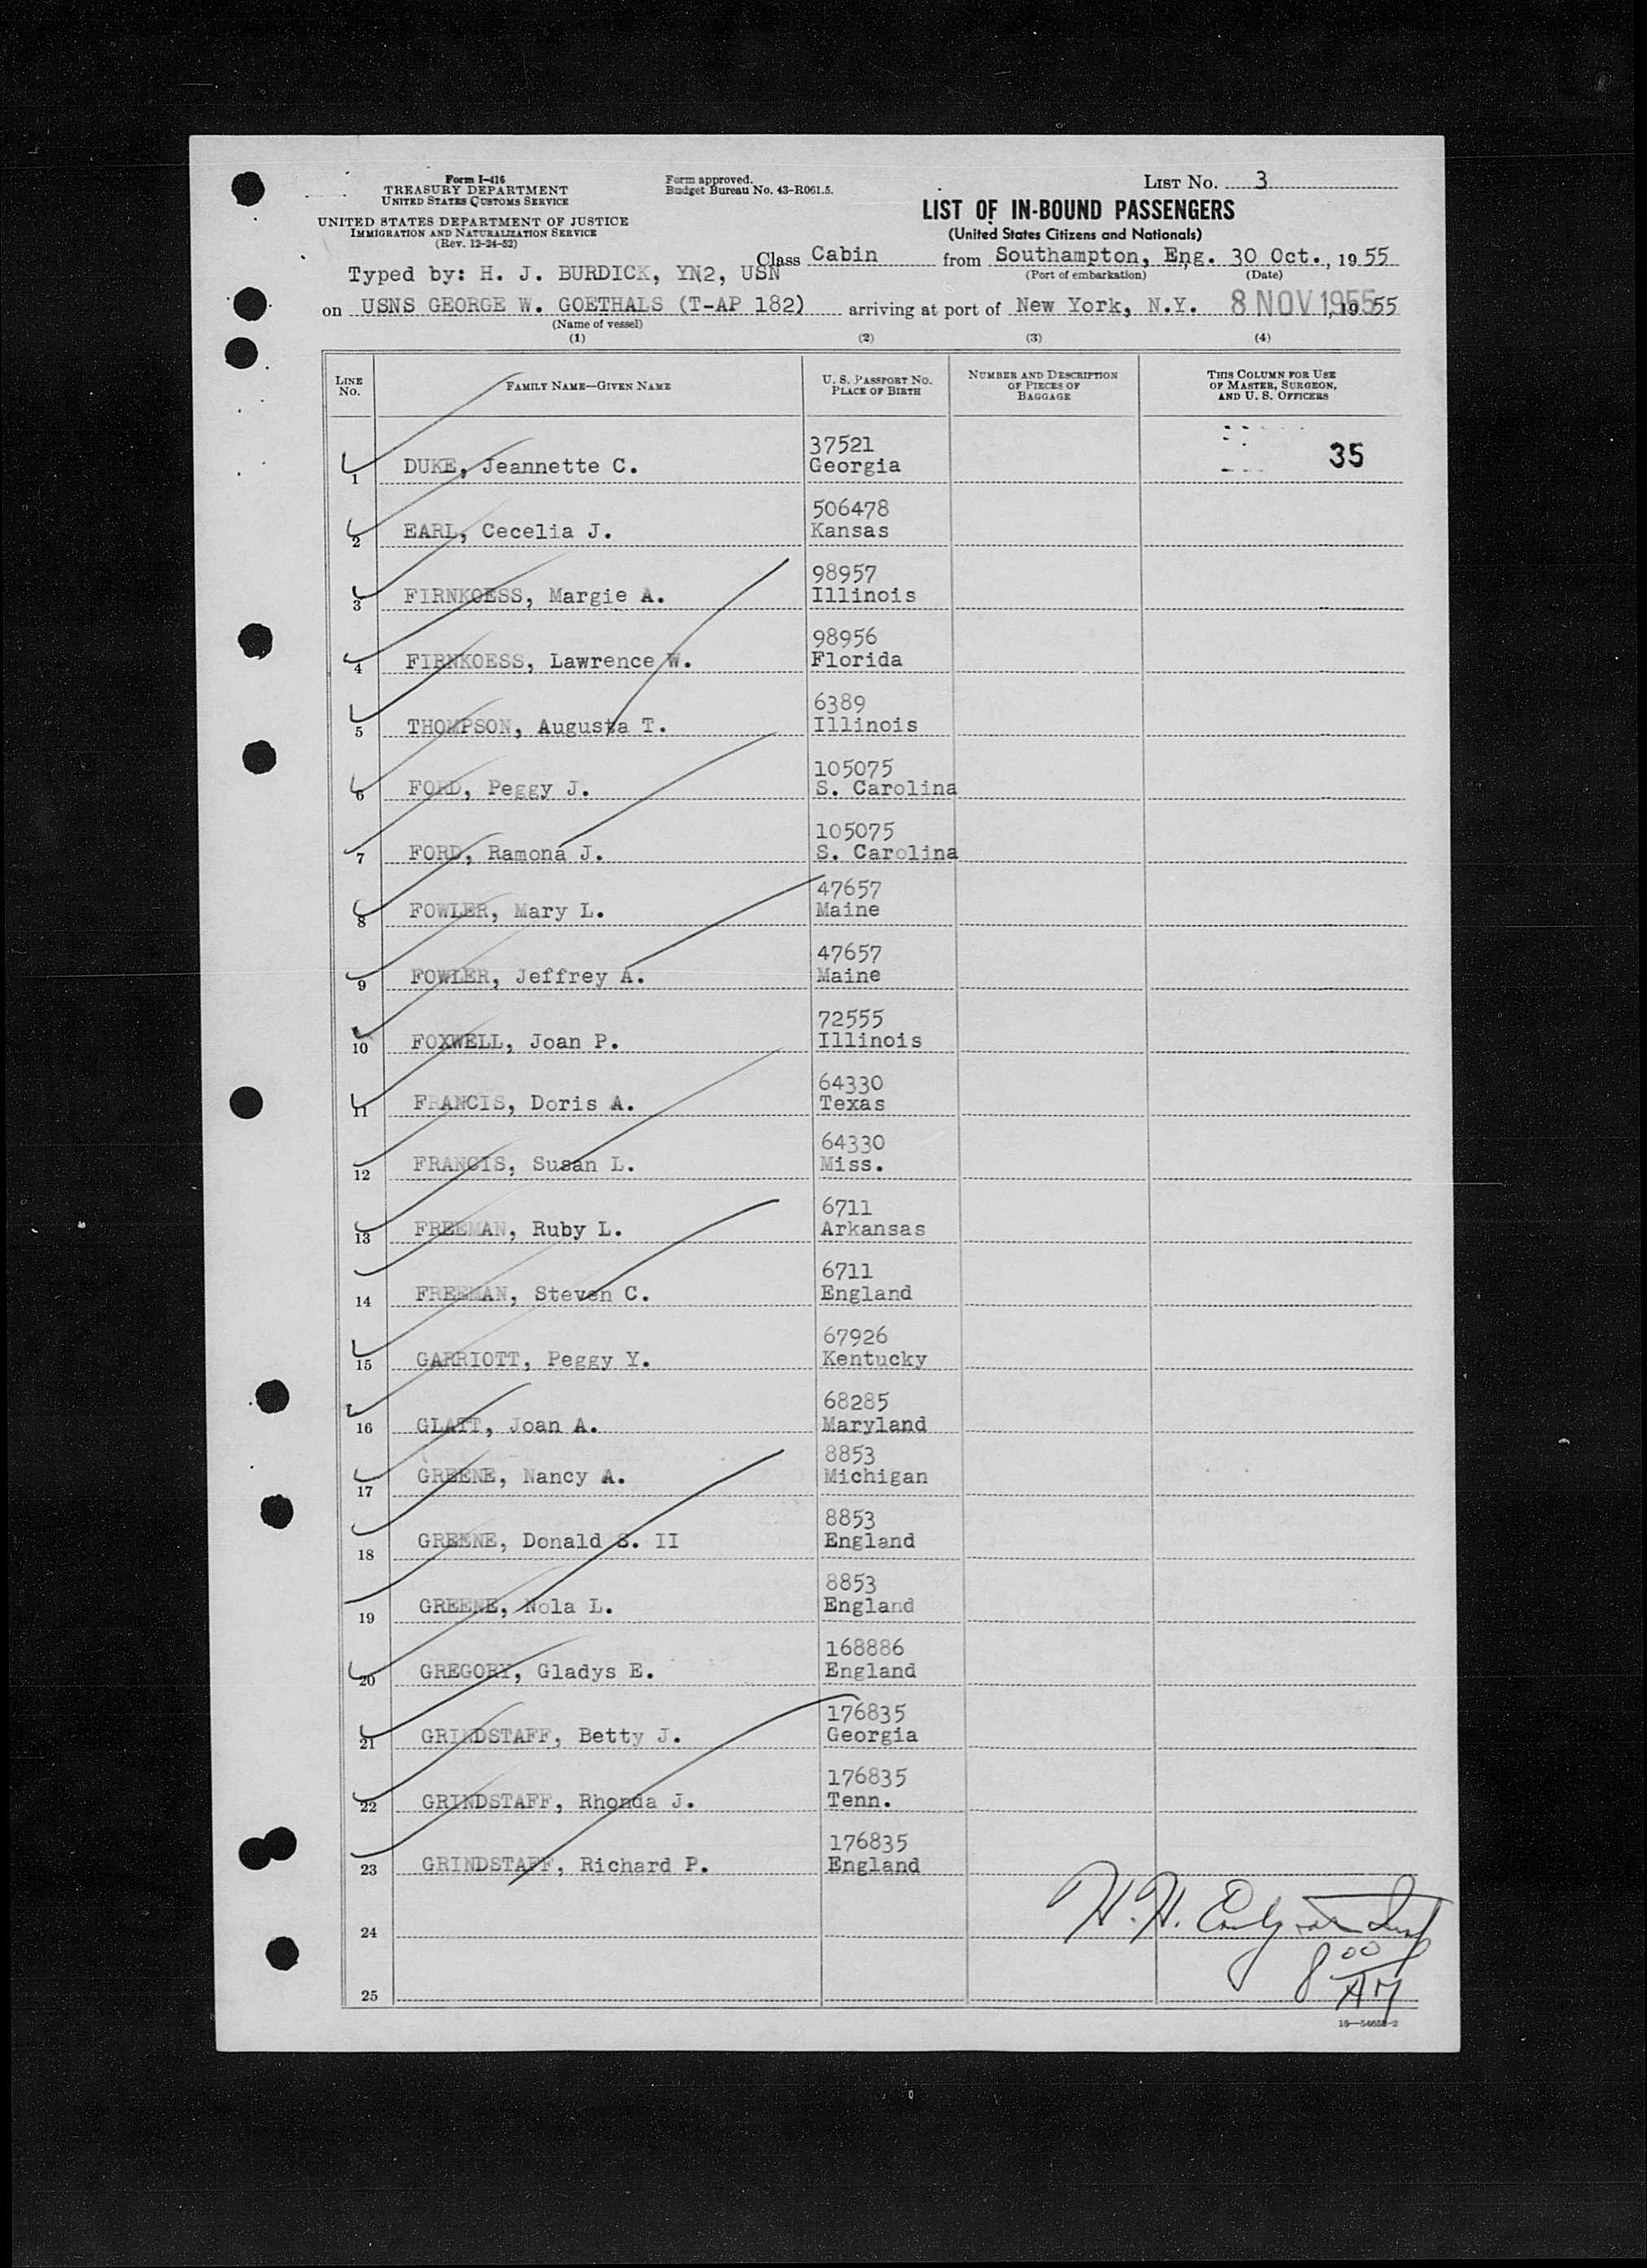 Form I-416
TREASURY DEPARTMENT
UNITED STATES CUSTOMS SERVICE
UNITED STATES DEPARTMENT OF JUSTICE
IMMIGRATION AND NATURALIZATION SERVICE
(Rev. 12-24-52)
Form approved.
Budget Bureau No. 43-R061.5.
LIST NO. 3
LIST OF IN-BOUND PASSENGERS
(United States Citizens and Nationals)
Typed by: H. J. BURDICK, YN2, USN
Class Cabin from Southampton, Eng. 30 Oct., 1955
(Port of embarkation) (Date)
on USNS GEORGE W. GOETHALS (T-AP 182) arriving at port of New York, N.Y. 8 NOV 1955, 1955
(Name of vessel)
(1) (2) (3) (4)
LINE NO.
FAMILY NAME—GIVEN NAME
U. S. PASSPORT NO.
PLACE OF BIRTH
NUMBER AND DESCRIPTION
OF PIECES OF
BAGGAGE
THIS COLUMN FOR USE
OF MASTER, SURGEON,
AND U. S. OFFICERS
37521
1 DUKE, Jeannette C. Georgia 35
506478
2 EARL, Cecelia J. Kansas
98957
3 FIRNKOESS, Margie A. Illinois
98956
4 FIRNKOESS, Lawrence W. Florida
6389
5 THOMPSON, Augusta T. Illinois
105075
6 FORD, Peggy J. S. Carolina
105075
7 FORD, Ramona J. S. Carolina
47657
8 FOWLER, Mary L. Maine
47657
9 FOWLER, Jeffrey A. Maine
72555
10 FOXWELL, Joan P. Illinois
64330
11 FRANCIS, Doris A. Texas
64330
12 FRANCIS, Susan L. Miss.
6711
13 FREEMAN, Ruby L. Arkansas
6711
14 FREEMAN, Steven C. England
67926
15 GARRIOTT, Peggy Y. Kentucky
68285
16 GLATT, Joan A. Maryland
8853
17 GREENE, Nancy A. Michigan
8853
18 GREENE, Donald S. II England
8853
19 GREENE, Nola L. England
168886
20 GREGORY, Gladys E. England
176835
21 GRINDSTAFF, Betty J. Georgia
176835
22 GRINDSTAFF, Rhonda J. Tenn.
176835
23 GRINDSTAFF, Richard P. England
24 H. H.
25 8 00 AM